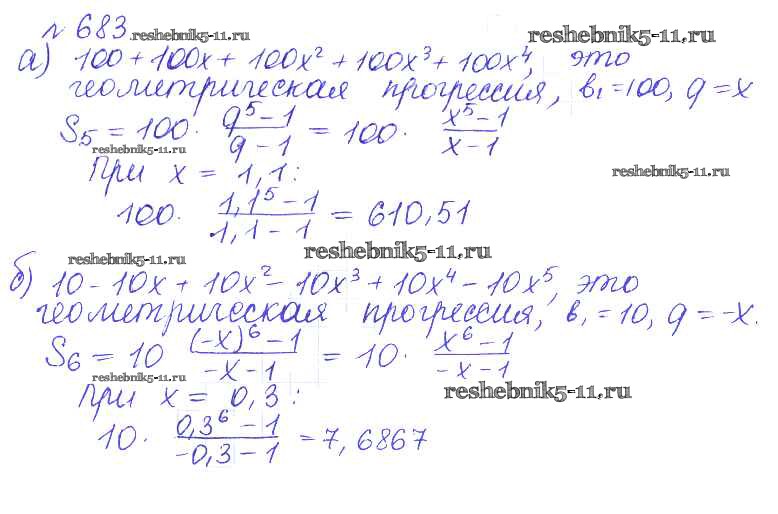 № 683 reshebnik5-11.ru reshebnik5-11.ru
а) 100 + 100x + 100x² + 100x³ + 100x⁴, это
геометрическая прогрессия, b₁ = 100, q = x
S₅ = 100 · (q⁵ - 1)/(q - 1) = 100 · (x⁵ - 1)/(x - 1)
reshebnik5-11.ru
При x = 1,1: reshebnik5-11.ru
100 · (1,1⁵ - 1)/(1,1 - 1) = 610,51
reshebnik5-11.ru reshebnik5-11.ru
б) 10 - 10x + 10x² - 10x³ + 10x⁴ - 10x⁵, это
геометрическая прогрессия, b₁ = 10, q = -x.
S₆ = 10 ((-x)⁶ - 1)/(-x - 1) = 10 · (x⁶ - 1)/(-x - 1)
reshebnik5-11.ru
При x = 0,3: reshebnik5-11.ru
10 · (0,3⁶ - 1)/(-0,3 - 1) = 7,6867